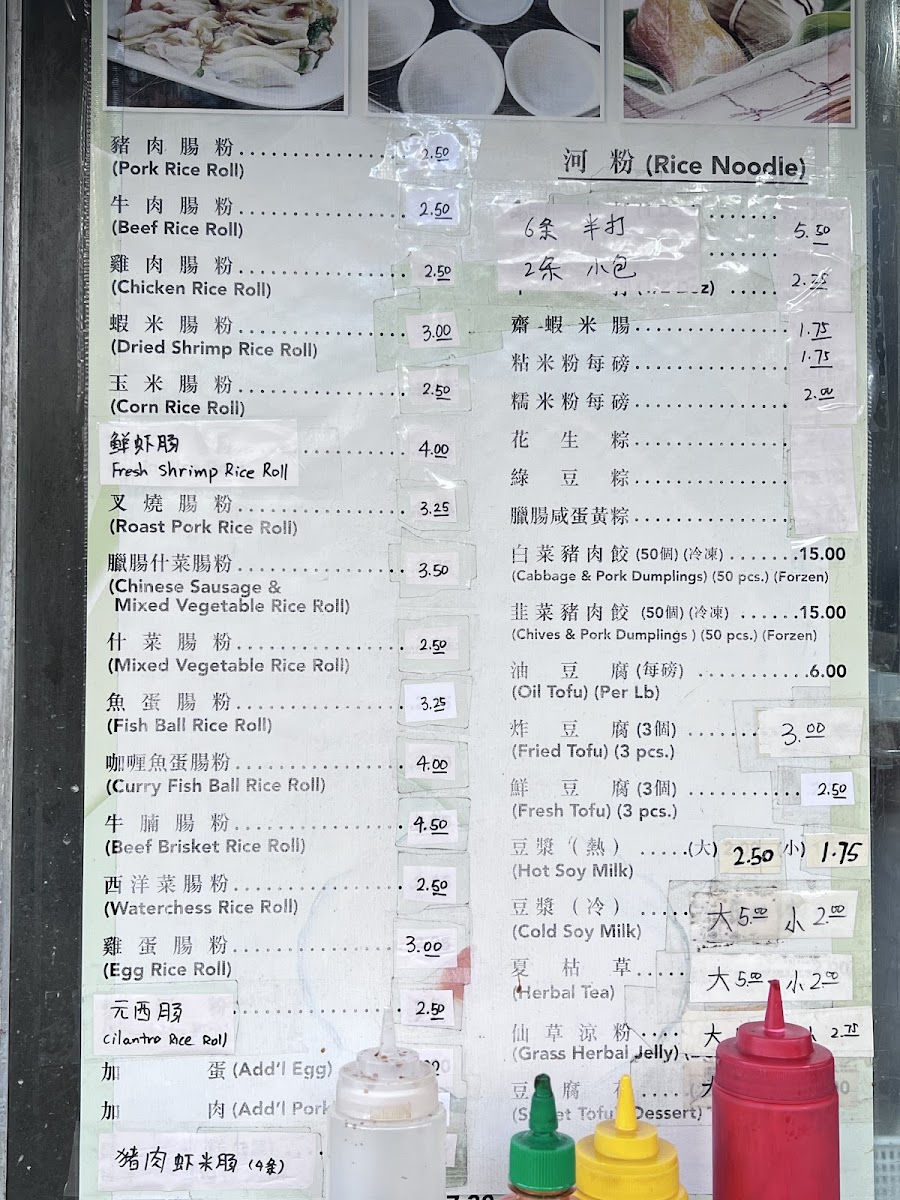 豬肉腸粉........................2.50
(Pork Rice Roll)
牛肉腸粉........................2.50
(Beef Rice Roll)
雞肉腸粉........................2.50
(Chicken Rice Roll)
蝦米腸粉........................3.00
(Dried Shrimp Rice Roll)
玉米腸粉........................2.50
(Corn Rice Roll)
鲜虾肠 ............4.00
Fresh Shrimp Rice Roll
叉燒腸粉........................3.25
(Roast Pork Rice Roll)
臘腸什菜腸粉........................3.50
(Chinese Sausage &
Mixed Vegetable Rice Roll)
什菜腸粉........................2.50
(Mixed Vegetable Rice Roll)
魚蛋腸粉........................3.25
(Fish Ball Rice Roll)
咖喱魚蛋腸粉........................4.00
(Curry Fish Ball Rice Roll)
牛腩腸粉........................4.50
(Beef Brisket Rice Roll)
西洋菜腸粉........................2.50
(Waterchess Rice Roll)
雞蛋腸粉........................3.00
(Egg Rice Roll)
元西肠 ........................2.50
Cilantro Rice Roll
加蛋 (Add'l Egg)
加肉 (Add'l Pork
猪肉虾米肠 (4条)
河粉 (Rice Noodle)
6条 半打 ........ 5.50
2条 小包 ........ 2.25
齋蝦米腸........................1.75
粘米粉每磅........................1.75
糯米粉每磅........................2.00
花生粽........................
綠豆粽........................
臘腸咸蛋黃粽........................
白菜豬肉餃 (50個) (冷凍) ........15.00
(Cabbage & Pork Dumplings) (50 pcs.) (Forzen)
韭菜豬肉餃 (50個) (冷凍) ........15.00
(Chives & Pork Dumplings ) (50 pcs.) (Forzen)
油豆腐 (每磅) ............6.00
(Oil Tofu) (Per Lb)
炸豆腐 (3個) ........ 3.00
(Fried Tofu) (3 pcs.)
鮮豆腐 (3個) ............ 2.50
(Fresh Tofu) (3 pcs.)
豆漿（熱） .....(大) 2.50 小) 1.75
(Hot Soy Milk)
豆漿（冷） ..... 大 5.00 小 2.00
(Cold Soy Milk)
夏枯草..... 大 5.00 小 2.00
(Herbal Tea)
仙草涼粉..... 大 2.75
(Grass Herbal Jelly)
豆腐
Tofu Dessert)